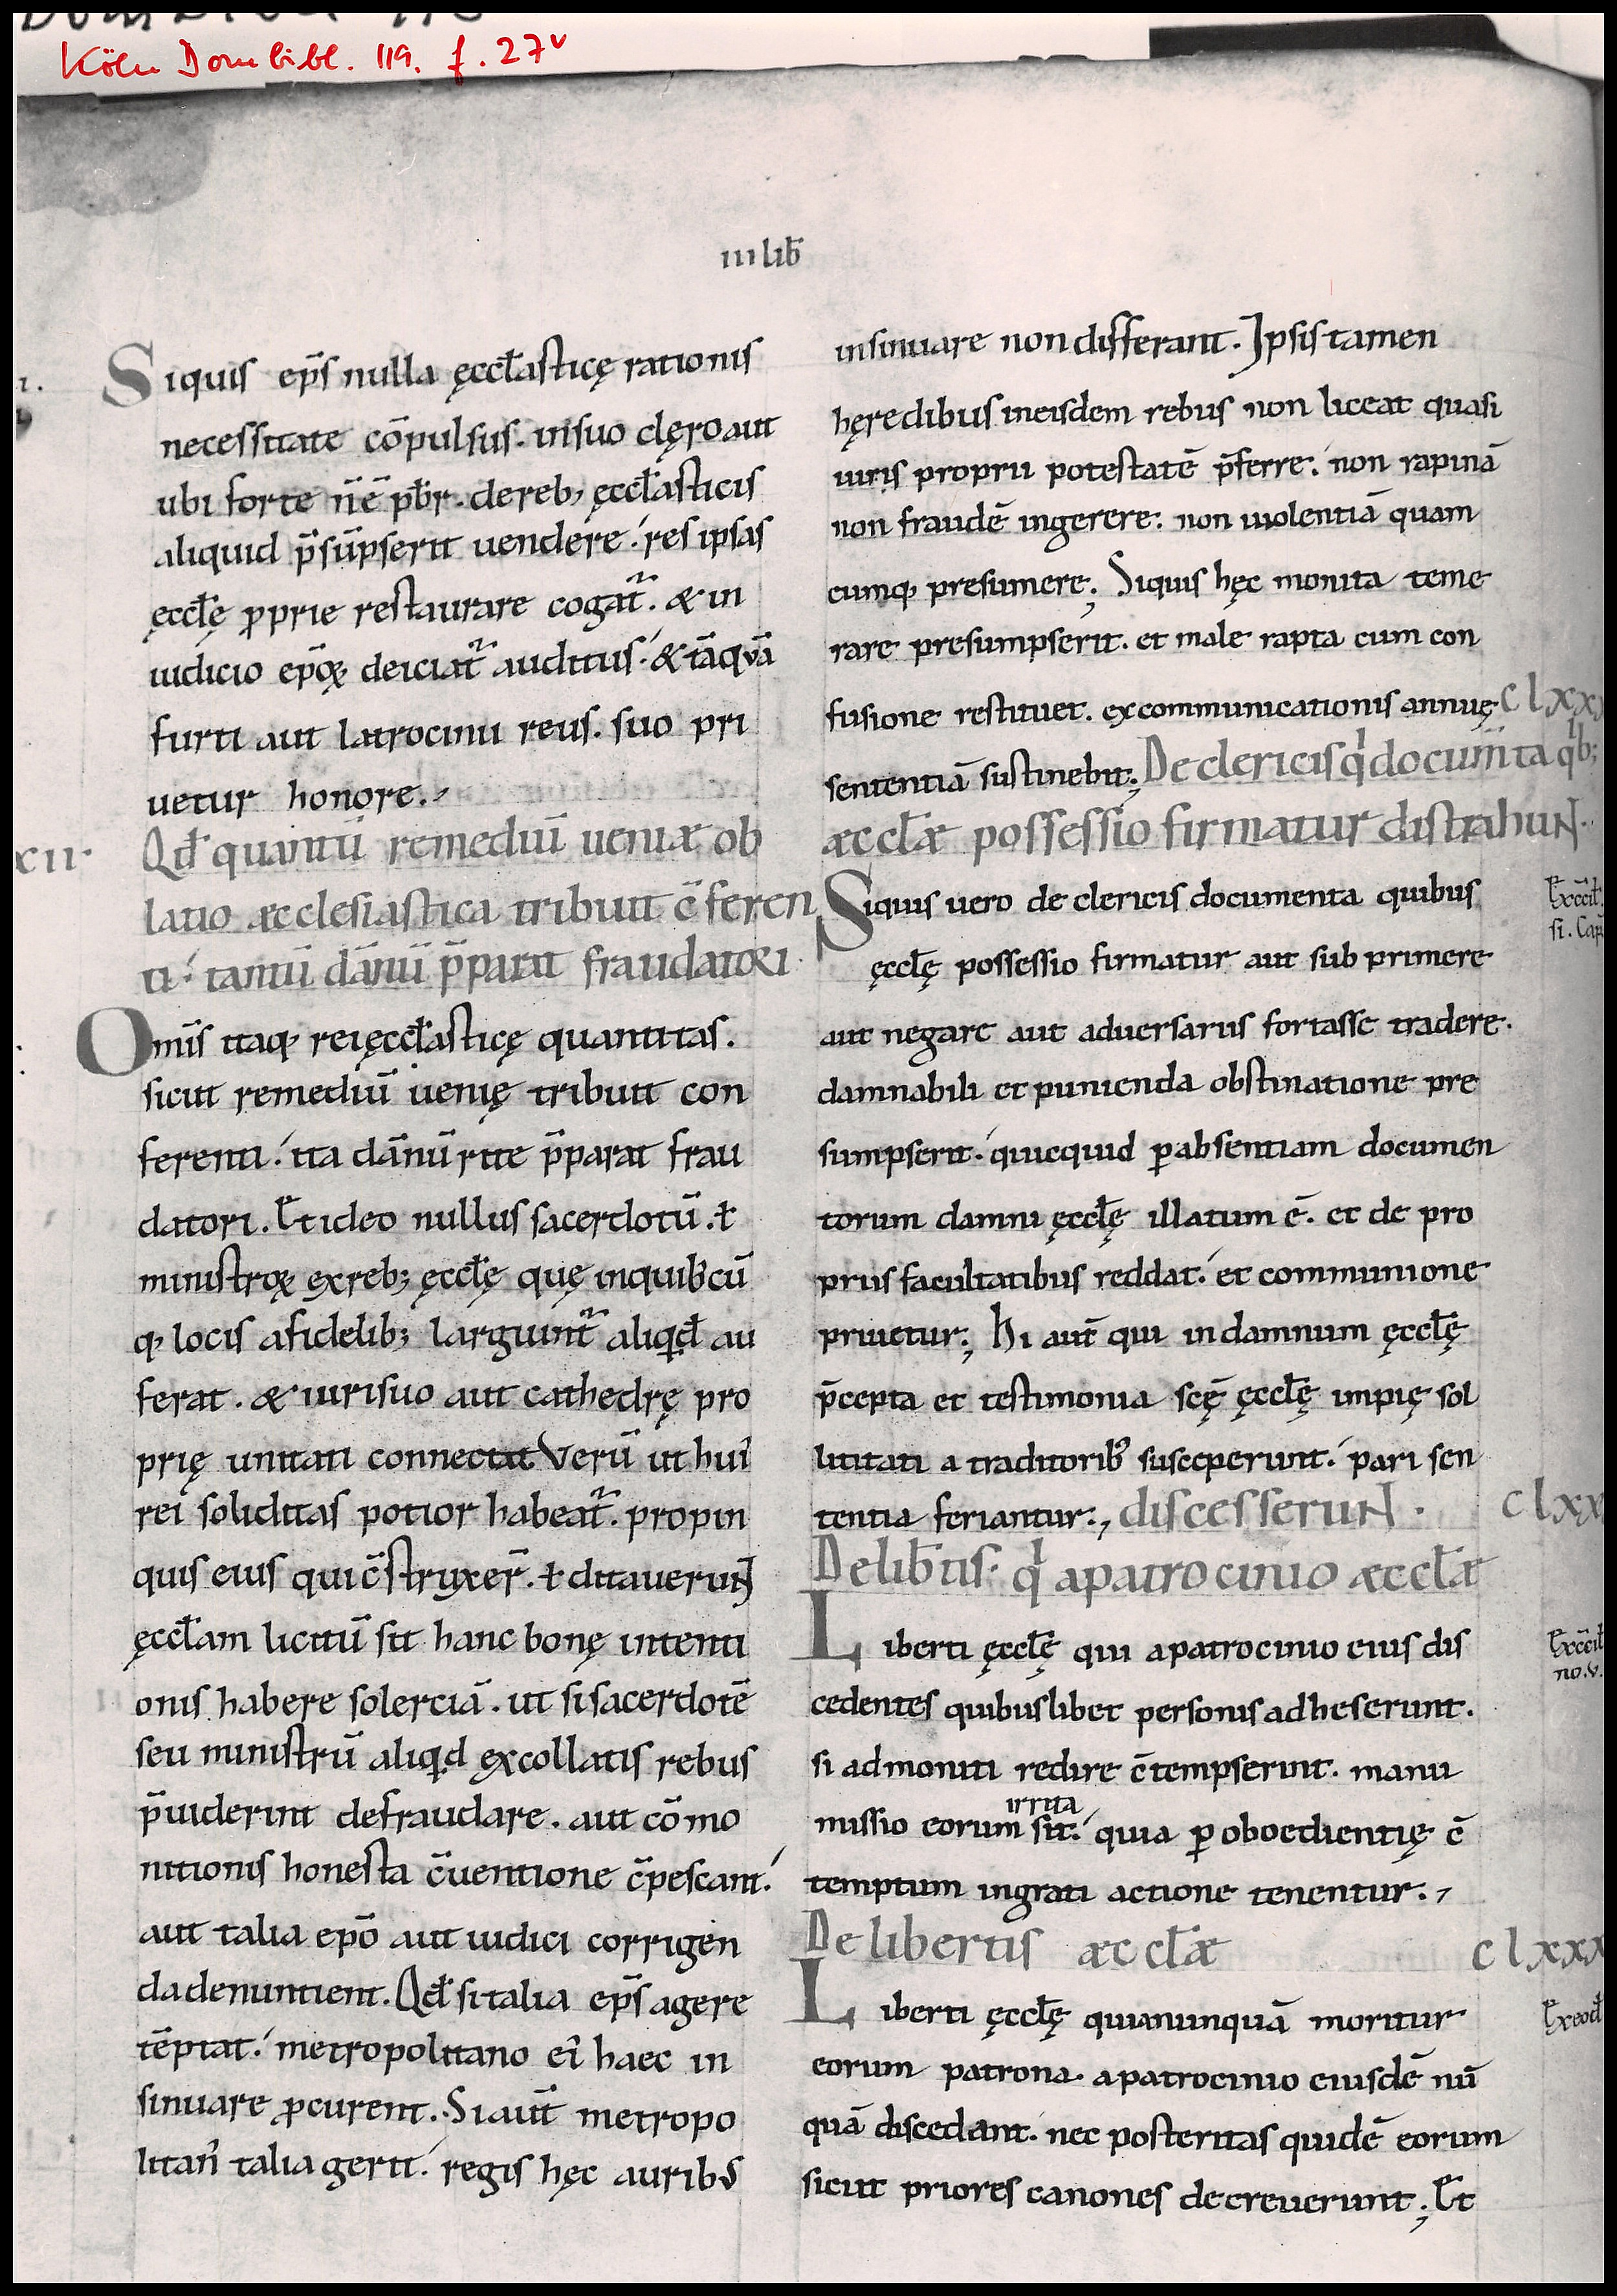 Köln Dombibl. 119. f. 27v
III lib̄
Siquis ep̄s nulla ęccl̄asticę rationis
necessitate cōpulsus. insuo clęro aut
ubi forte n̄ ē pb̄r. dereb; ęccl̄asticis
aliquid p̄sūpserit uendere. res ipsas
ęccl̄ę ꝓprie restaurare cogat̄. & in
iudicio ep̄oꝝ deiciat̄ auditus. & tāqvā
furti aut latrocinii reus. suo pri
uetur honore.
XCII. Qd̄ quantū remediū ueniæ ob
latio æcclesiastica tribuit c̄feren
ti. tantū dānū p̄parat fraudatori.
Omīs itaq; rei ęccl̄asticę quantitas.
sicut remediū uenię tribuit con
ferenti. ita dānū rite p̄parat frau
datori. Et ideo nullus sacerdotū. ł
ministroꝝ ex reb; ęccl̄ę quę inquib;cū
q; locis a fidelib; largiunt̄ aliqd̄ au
ferat. & iuri suo aut cathedrę pro
prię unitati connectat Verū ut hui'
rei soliditas potior habeat̄. propin
quis eius qui c̄struxer̄. ł ditaverunt
ęccl̄am licitū sit hanc bonę intenti
onis habere solerciā. ut si sacerdotē
seu ministrū aliqd excollatis rebus
p̄uiderint defraudare. aut cōmo
nitionis honesta c̄uentione c̄pescant.
aut talia ep̄o aut iudici corrigen
da denuntient. Qd̄ si talia ep̄s agere
tēptat. metropolitano ei' haec in
sinuare ꝓcurent. Si aut̄ metropo
litan' talia gerit. regis hęc auribus
insinuare non differant. Ipsis tamen
hęredibus in eisdem rebus non liceat quasi
iuris proprii potestatē p̄ferre. non rapinā
non fraudē ingerere. non uiolentiā quam
cumq; presumere; Siquis hęc monita teme
rare presumpserit. et male rapta cum con
fusione restituet. excommunicationis annuę
sententiā sustinebit; De clericis q' docum̄ta qb;
æccl̄æ possessio firmatur distrahunt.
Siquis uero de clericis documenta quibus
ęccl̄ę possessio firmatur aut sub primere
aut negare aut aduersariis fortasse tradere.
damnabili et punienda obstinatione pre
sumpserit. quicquid ꝑ absentiam documen
torum damni ęccl̄ę illatum ē. et de pro
priis facultatibus reddat. et communione
priuetur; Hi aut̄ qui in damnum ęccl̄ę
p̄cepta et testimonia sc̄ę ęccl̄ę impię sol
lititati a traditorib' susceperunt. pari sen
tentia feriantur; discesserunt.
De lib̄tis. q' a patrocinio æccl̄æ
Liberti ęccl̄ę qui a patrocinio eius dis
cedentes quibuslibet personis adheserunt.
si admoniti redire c̄tempserint. manu
missio eorum irrita sit. quia ꝑ oboedientię c̄
temptum ingrati actione tenentur.
De libertis æccl̄æ
Liberti ęccl̄ę quia nunquā moritur
eorum patrona. a patrocinio eiusdē nū
quā discedant. nec posteritas quidē eorum
sicut priores canones decreuerunt; Et